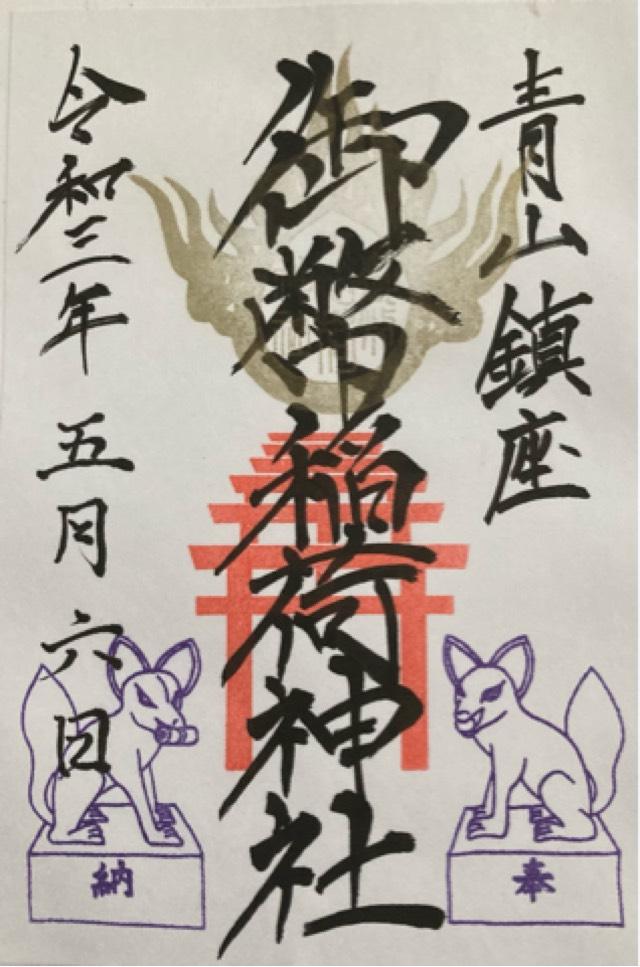 青山鎮座
御幣稲荷神社
令和三年五月六日
奉
納